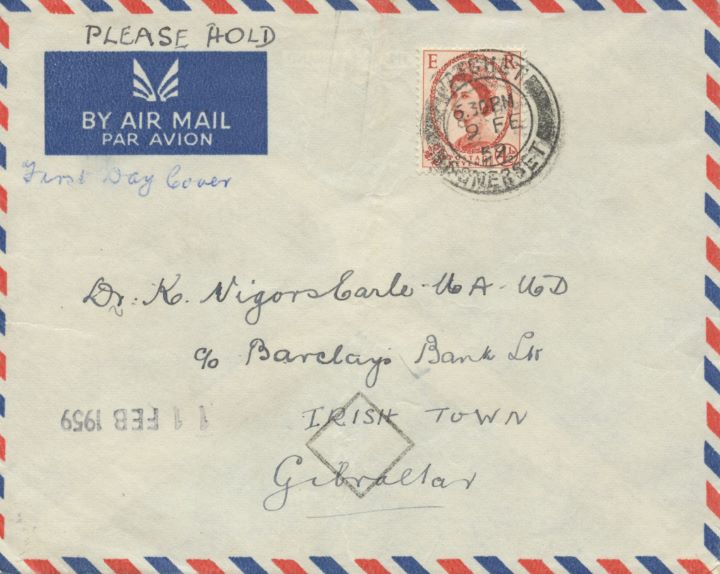 PLEASE HOLD
BY AIR MAIL
PAR AVION
First Day Cover
E R
WATCHET
6.30 PM
9 FE
59
SOMERSET
Dr. K. Vigors Earle MA MD
c/o Barclays Bank Ltd
IRISH TOWN
Gibraltar
11 FEB 1959